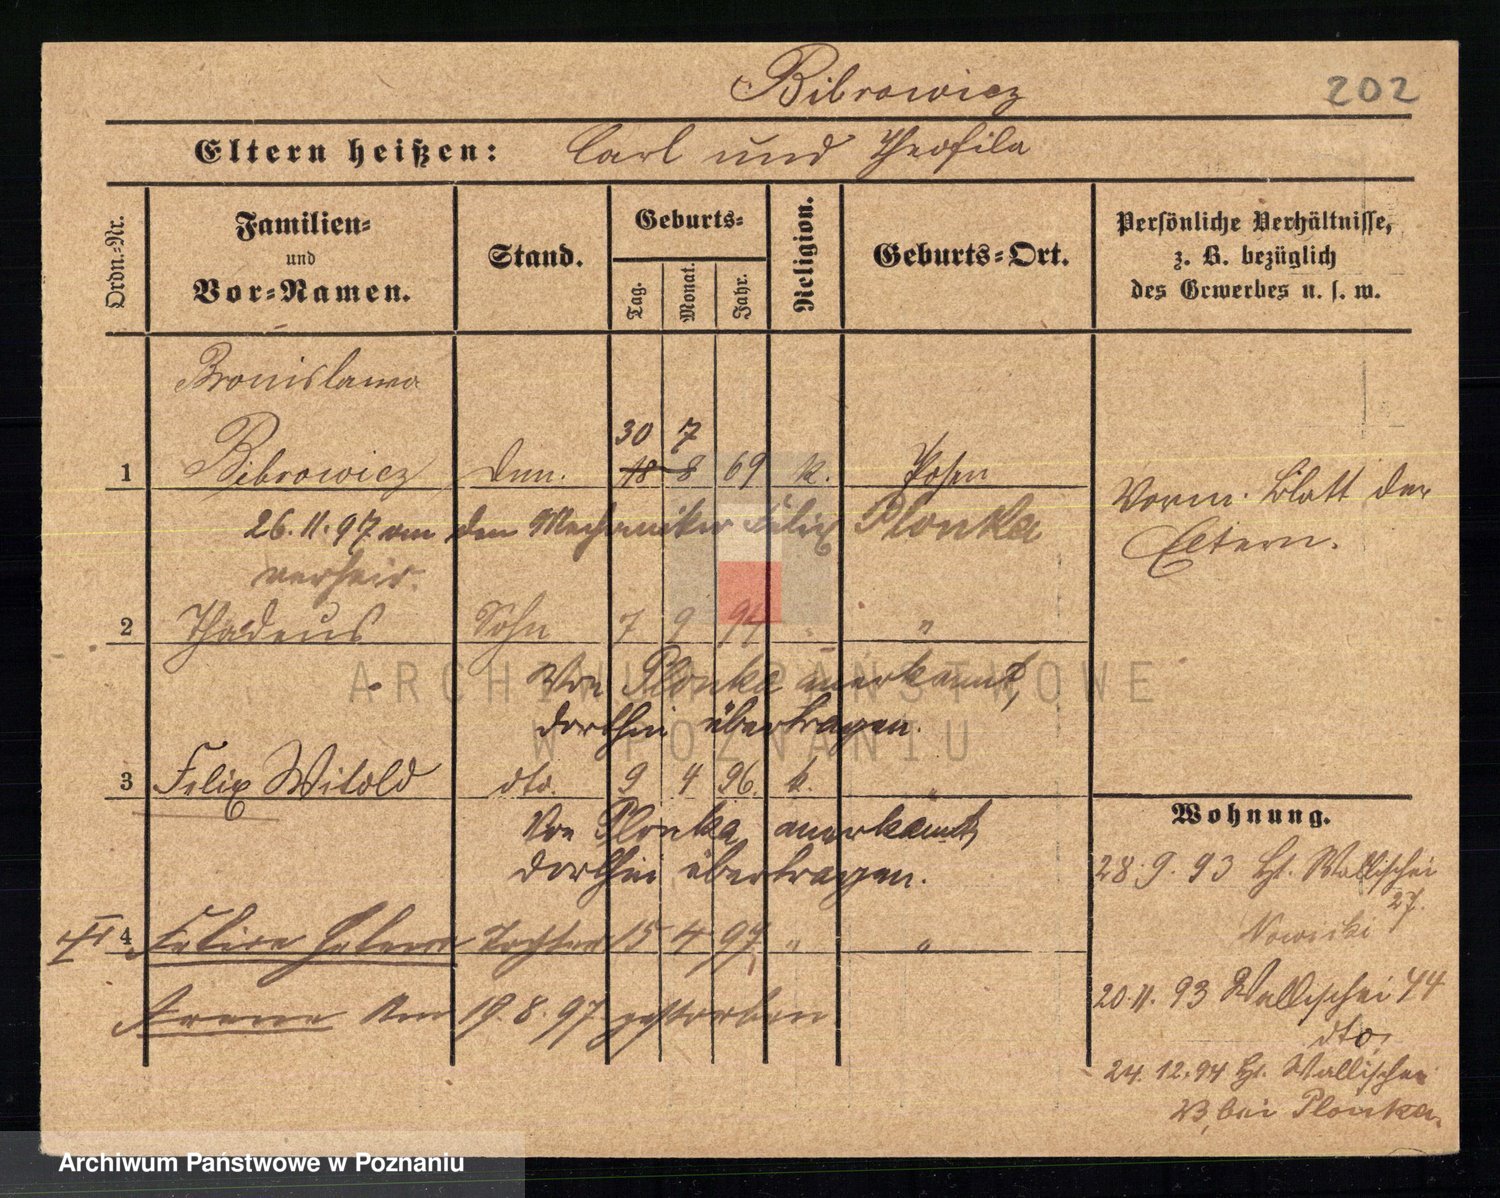 Bibrowicz 202
Eltern heißen: Carl und Theofila
Ordn.-Nr.
Familien-
und
Vor-Namen.
Stand.
Geburts-
Tag. Monat. Jahr.
Religion.
Geburts-Ort.
Persönliche Verhältnisse,
z. B. bezüglich
des Gewerbes u. s. w.
Bronislawa
30 7
1 Bibrowicz 18 8 69 k. Posen
Vorm. Blatt der
Eltern.
26.11.97 an den Mechaniker Felix Plonka
verheir.
2 Thadeus Sohn 7 9 94 "
Von Plonka anerkannt,
dorthin übertragen.
3 Felix Witold dto. 9 4 96. k. "
Von Plonka anerkannt,
dorthin übertragen.
4 Tochter 15 4 97 " "
Am 19.8.97 gestorben
Wohnung.
28.9.93 Wallischei
27.
Nowicki
20.11.93 Wallischei 44
dto.
24.12.94 Wallischei
23, bei Plonka.
ARCHIWUM PAŃSTWOWE
W POZNANIU
Archiwum Państwowe w Poznaniu